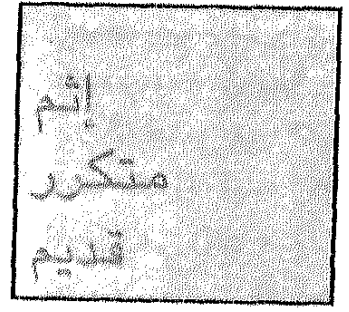 إثم
متكرر
قديم